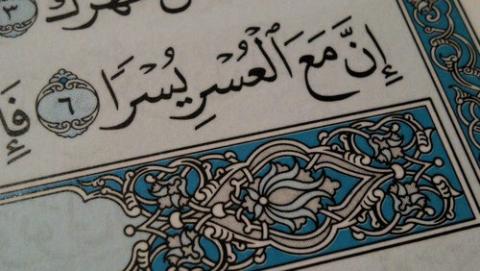 ظهرك ٣
إِنَّ مَعَ ٱلْعُسْرِ يُسْرًا ٦